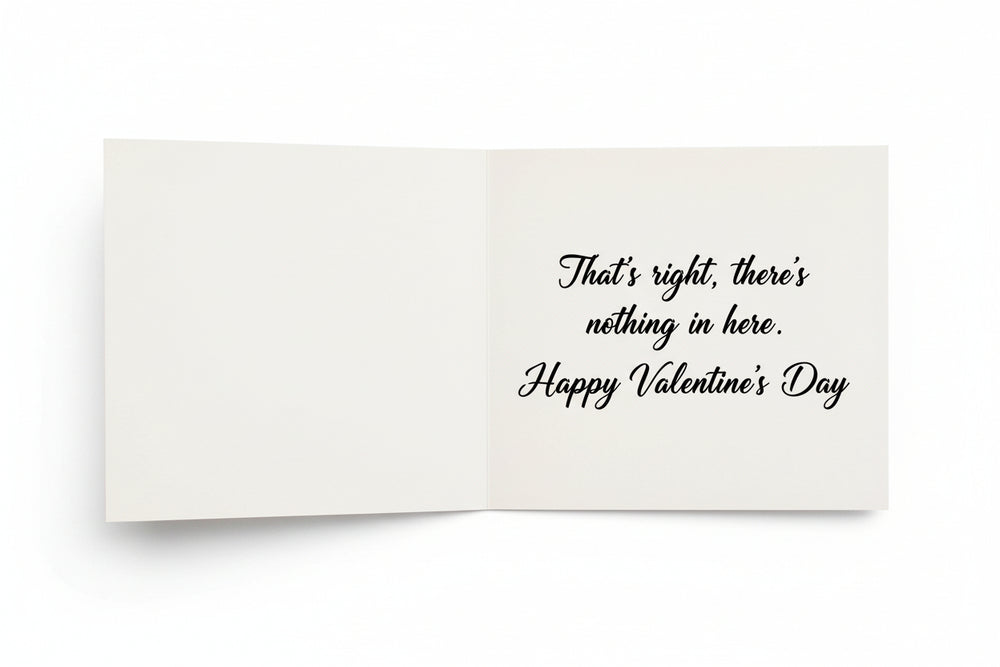 That's right, there's
nothing in here.
Happy Valentine's Day